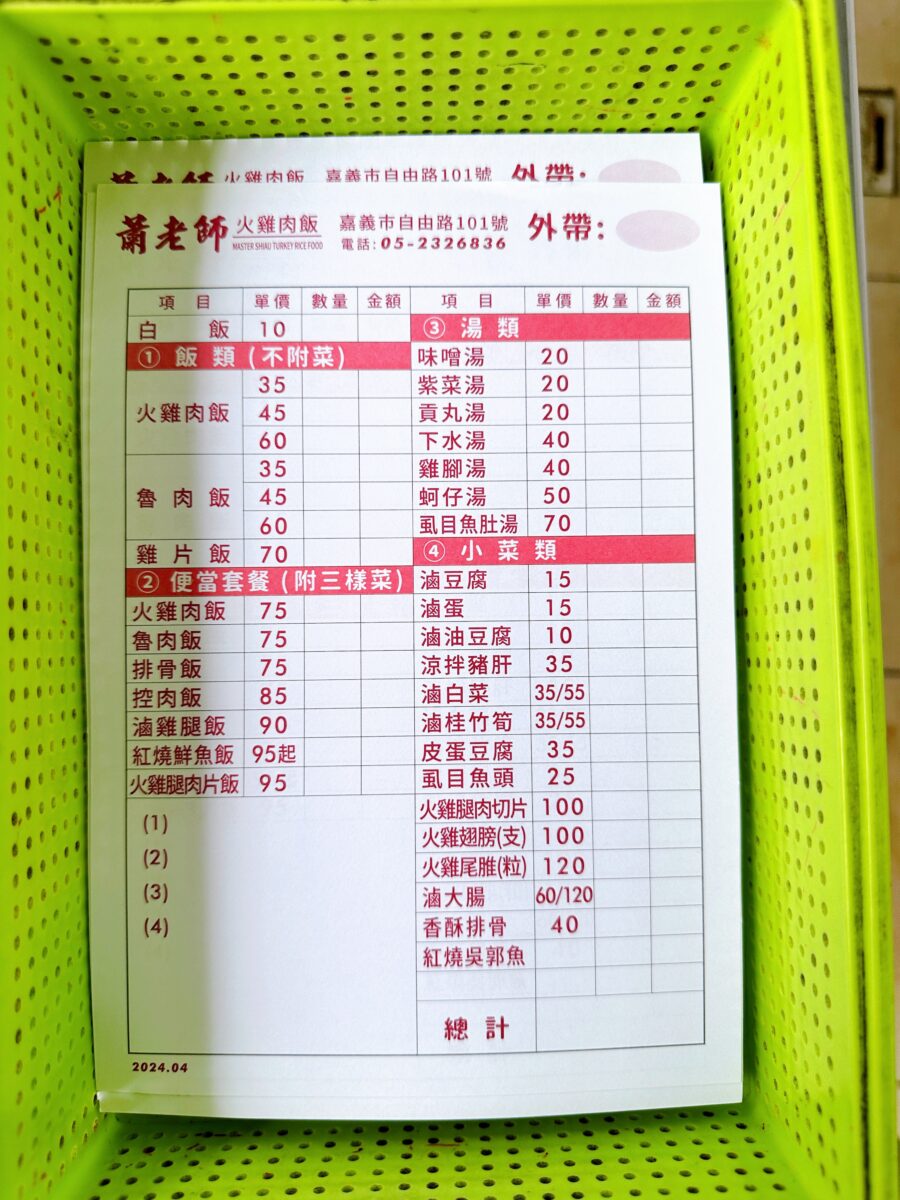 蕭老師 火雞肉飯 嘉義市自由路101號 外帶:
蕭老師 火雞肉飯 嘉義市自由路101號 外帶:
MASTER SHIAU TURKEY RICE FOOD 電話:05-2326836
項目 單價 數量 金額
白飯 10
① 飯類(不附菜)
火雞肉飯 35
45
60
魯肉飯 35
45
60
雞片飯 70
② 便當套餐(附三樣菜)
火雞肉飯 75
魯肉飯 75
排骨飯 75
控肉飯 85
滷雞腿飯 90
紅燒鮮魚飯 95起
火雞腿肉片飯 95
(1)
(2)
(3)
(4)
項目 單價 數量 金額
③ 湯類
味噌湯 20
紫菜湯 20
貢丸湯 20
下水湯 40
雞腳湯 40
蚵仔湯 50
虱目魚肚湯 70
④ 小菜類
滷豆腐 15
滷蛋 15
滷油豆腐 10
涼拌豬肝 35
滷白菜 35/55
滷桂竹筍 35/55
皮蛋豆腐 35
虱目魚頭 25
火雞腿肉切片 100
火雞翅膀(支) 100
火雞尾脽(粒) 120
滷大腸 60/120
香酥排骨 40
紅燒吳郭魚
總計
2024.04